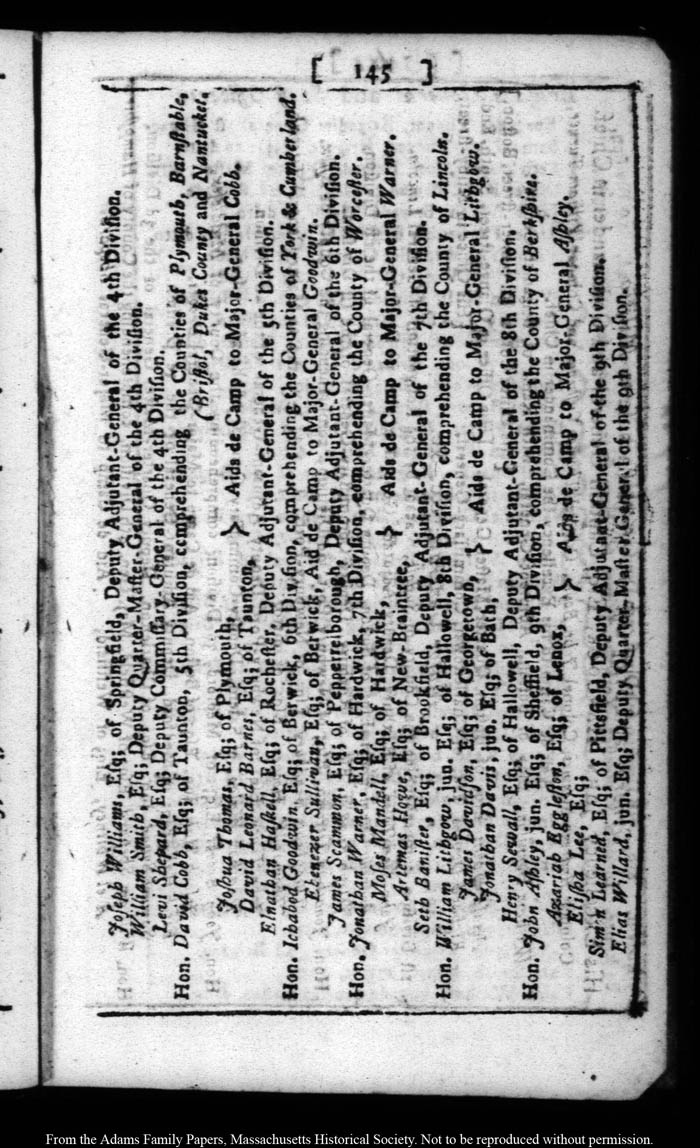 [ 145 ]
Joseph Williams, Esq; of Springfield, Deputy Adjutant-General of the 4th Division.
William Smith, Esq; Deputy Quarter-Master-General of the 4th Division.
Levi Shepard, Esq; Deputy Commissary-General of the 4th Division.
Hon. David Cobb, Esq; of Taunton, 5th Division, comprehending the Counties of Plymouth, Barnstable,
(Bristol, Dukes County and Nantucket.
Joshua Thomas, Esq; of Plymouth,
David Leonard Barnes, Esq; of Taunton, } Aids de Camp to Major-General Cobb.
Elnathan Haskell, Esq; of Rochester, Deputy Adjutant-General of the 5th Division.
Hon. Ichabod Goodwin, Esq; of Berwick, 6th Division, comprehending the Counties of York & Cumberland.
Ebenezer Sullivan, Esq; of Berwick, Aid de Camp to Major-General Goodwin.
James Scammon, Esq; of Pepperrelborough, Deputy Adjutant-General of the 6th Division.
Hon. Jonathan Warner, Esq; of Hardwick, 7th Division, comprehending the County of Worcester.
Moses Mandell, Esq; of Hardwick,
Artemas Howe, Esq; of New-Braintree, } Aids de Camp to Major-General Warner.
Seth Banister, Esq; of Brookfield, Deputy Adjutant-General of the 7th Division.
Hon. William Lithgow, jun. Esq; of Hallowell, 8th Division, comprehending the County of Lincoln.
James Davidson, Esq; of Georgetown,
Jonathan Davis, jun. Esq; of Bath, } Aids de Camp to Major-General Lithgow.
Henry Sewall, Esq; of Hallowell, Deputy Adjutant-General of the 8th Division.
Hon. John Ashley, jun. Esq; of Sheffield, 9th Division, comprehending the County of Berkshire.
Azariah Eggleston, Esq; of Lenox,
Elisha Lee, Esq; } Aids de Camp to Major-General Ashley.
Simon Learned, Esq; of Pittsfield, Deputy Adjutant-General of the 9th Division.
Elias Willard, jun. Esq; Deputy Quarter-Master General of the 9th Division.
From the Adams Family Papers, Massachusetts Historical Society. Not to be reproduced without permission.